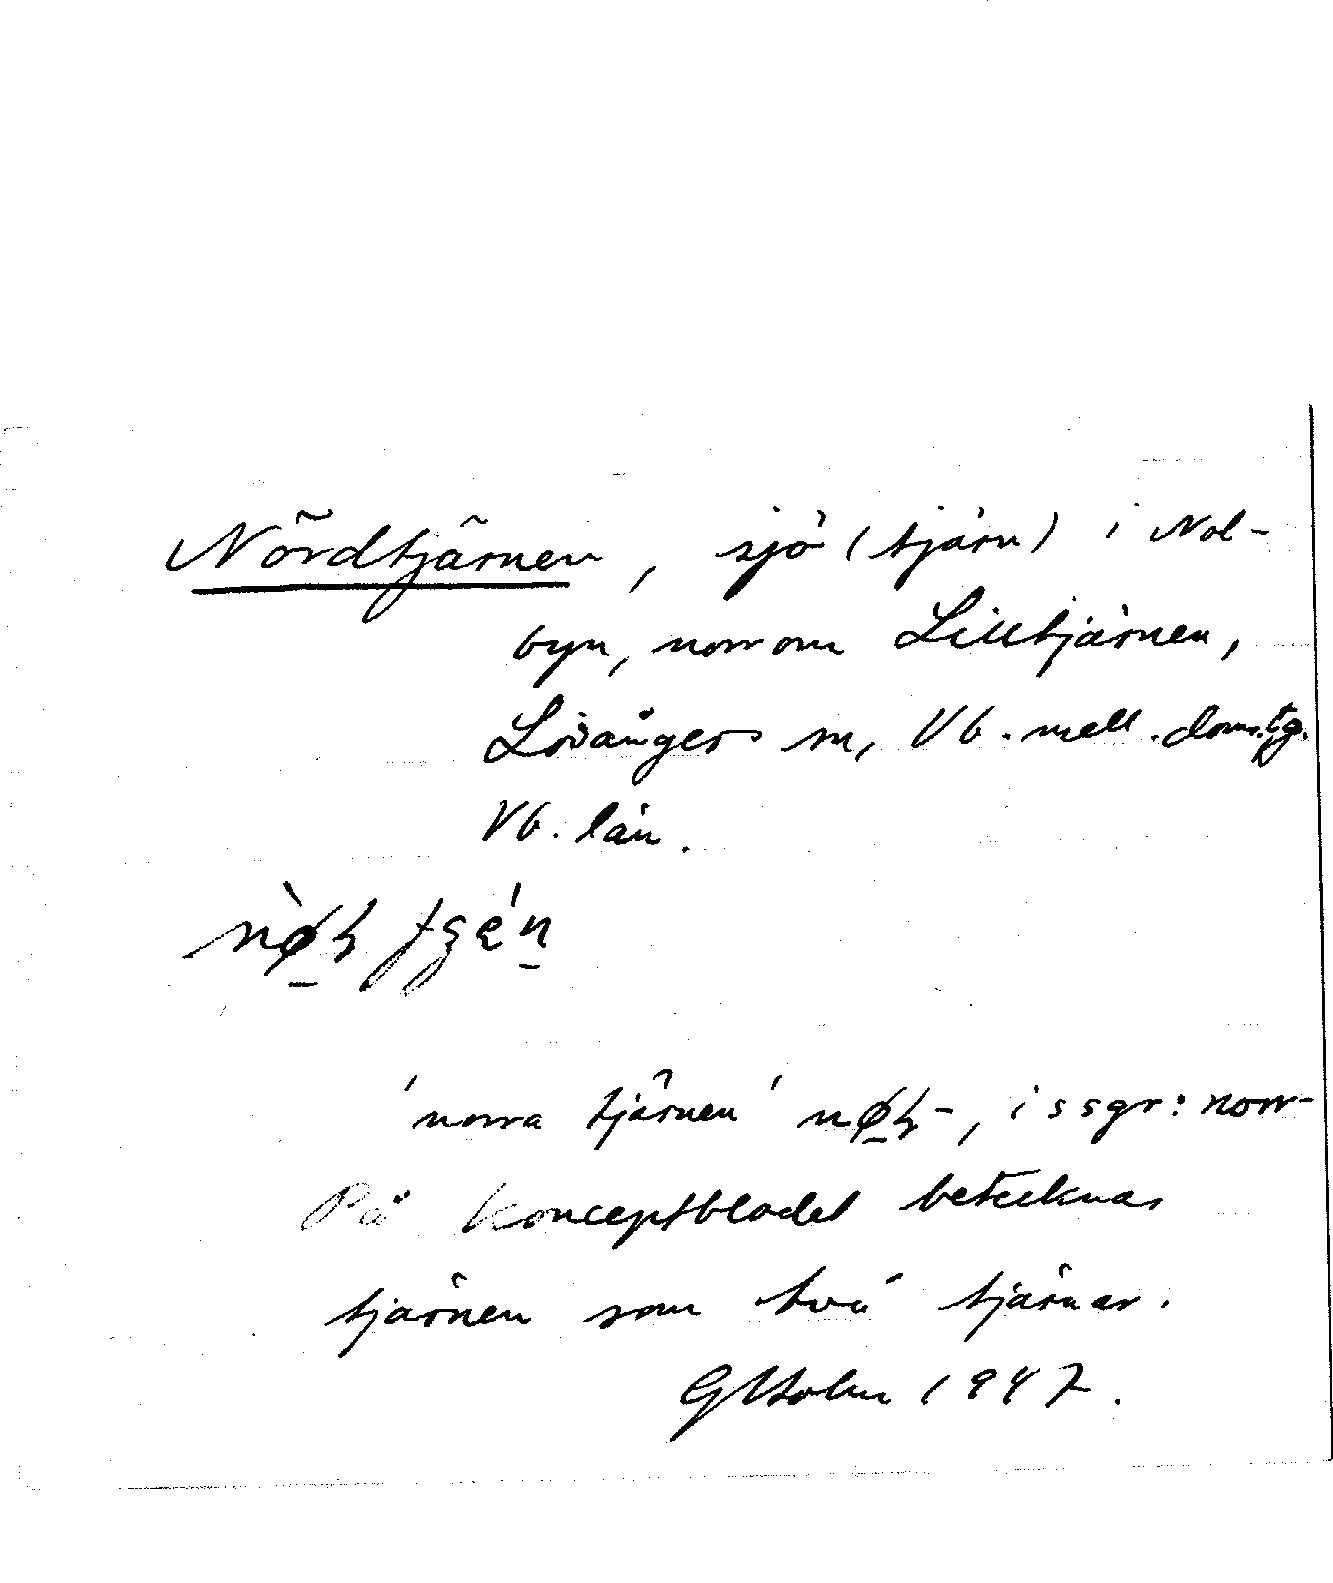 Nördtjärnen, sjö (tjärn) i Nol-
byn, norr om Lilltjärnen,
Lövångers sn, Vb. mell. doms.tg.
Vb. län.
'norra tjärnen' i ssgr: norr-
På konceptbladet betecknas
tjärnen som två tjärnar.
G Holm 1947.